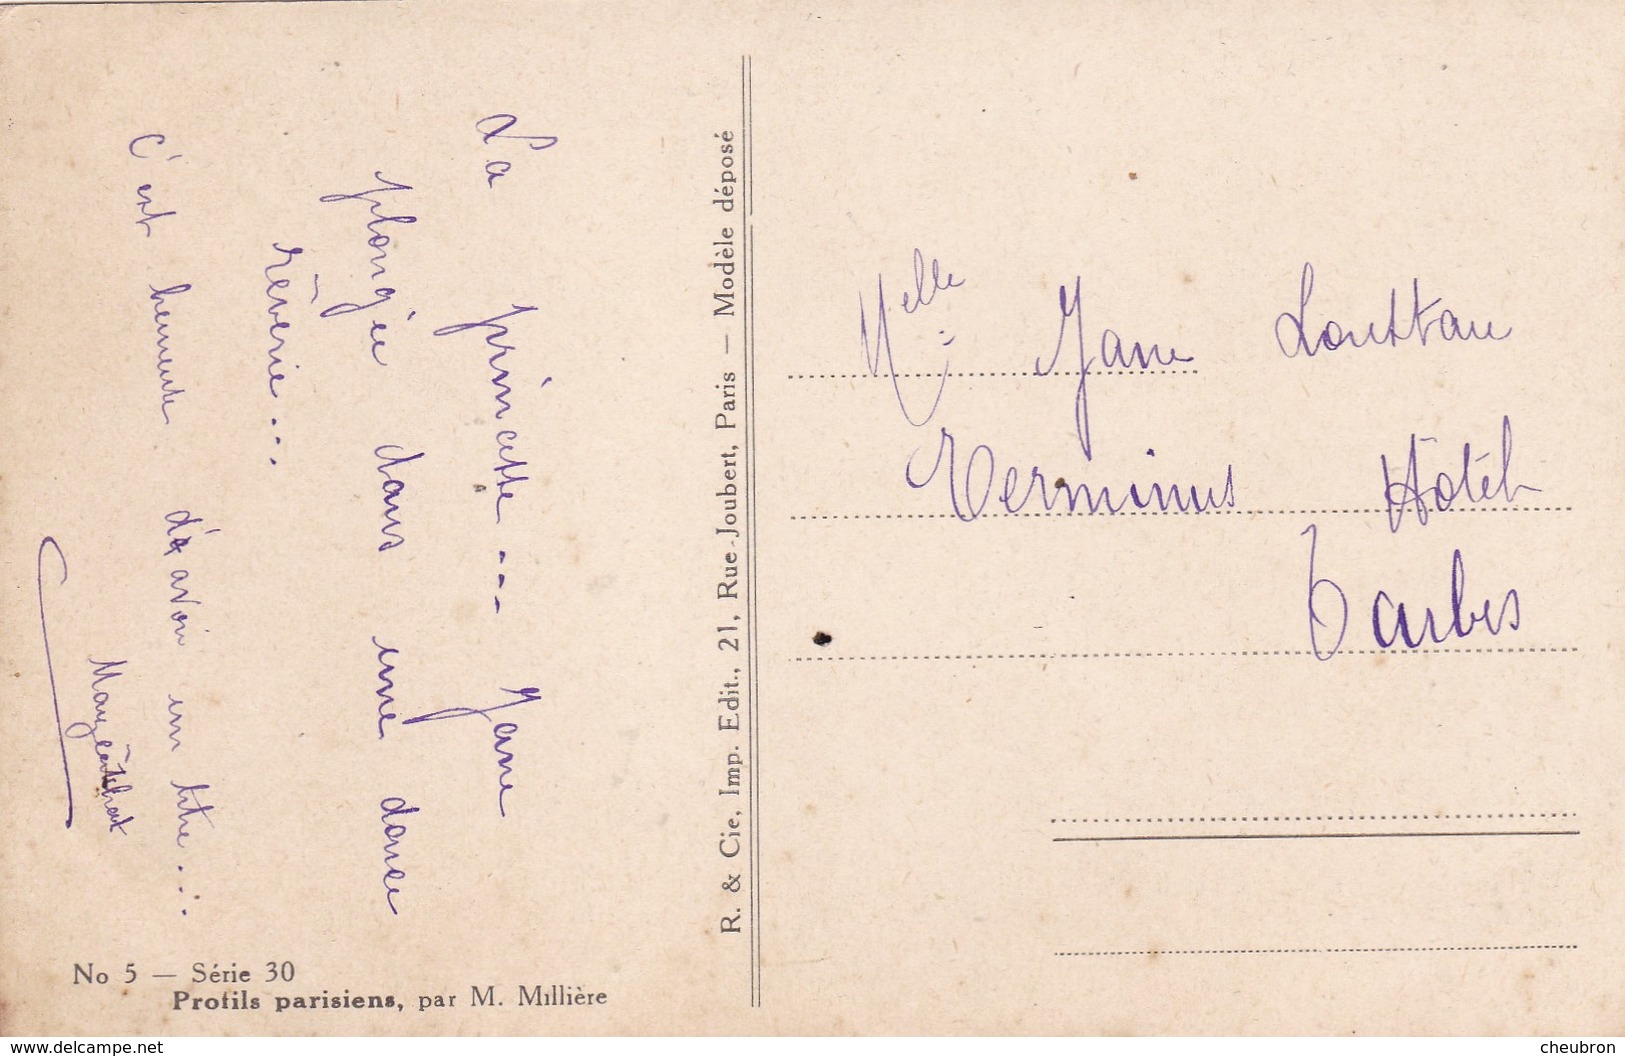 La princette... Jane
plongée dans une douce
rêverie...
C'est heureux d'avoir un titre...
R. & Cie, Imp. Edit., 21, Rue Joubert, Paris — Modèle déposé
Melle Jane Loustau
Terminus Hôtel
Tarbes
No 5 — Série 30
Profils parisiens, par M. Millière
www.delcampe.net
cheubron